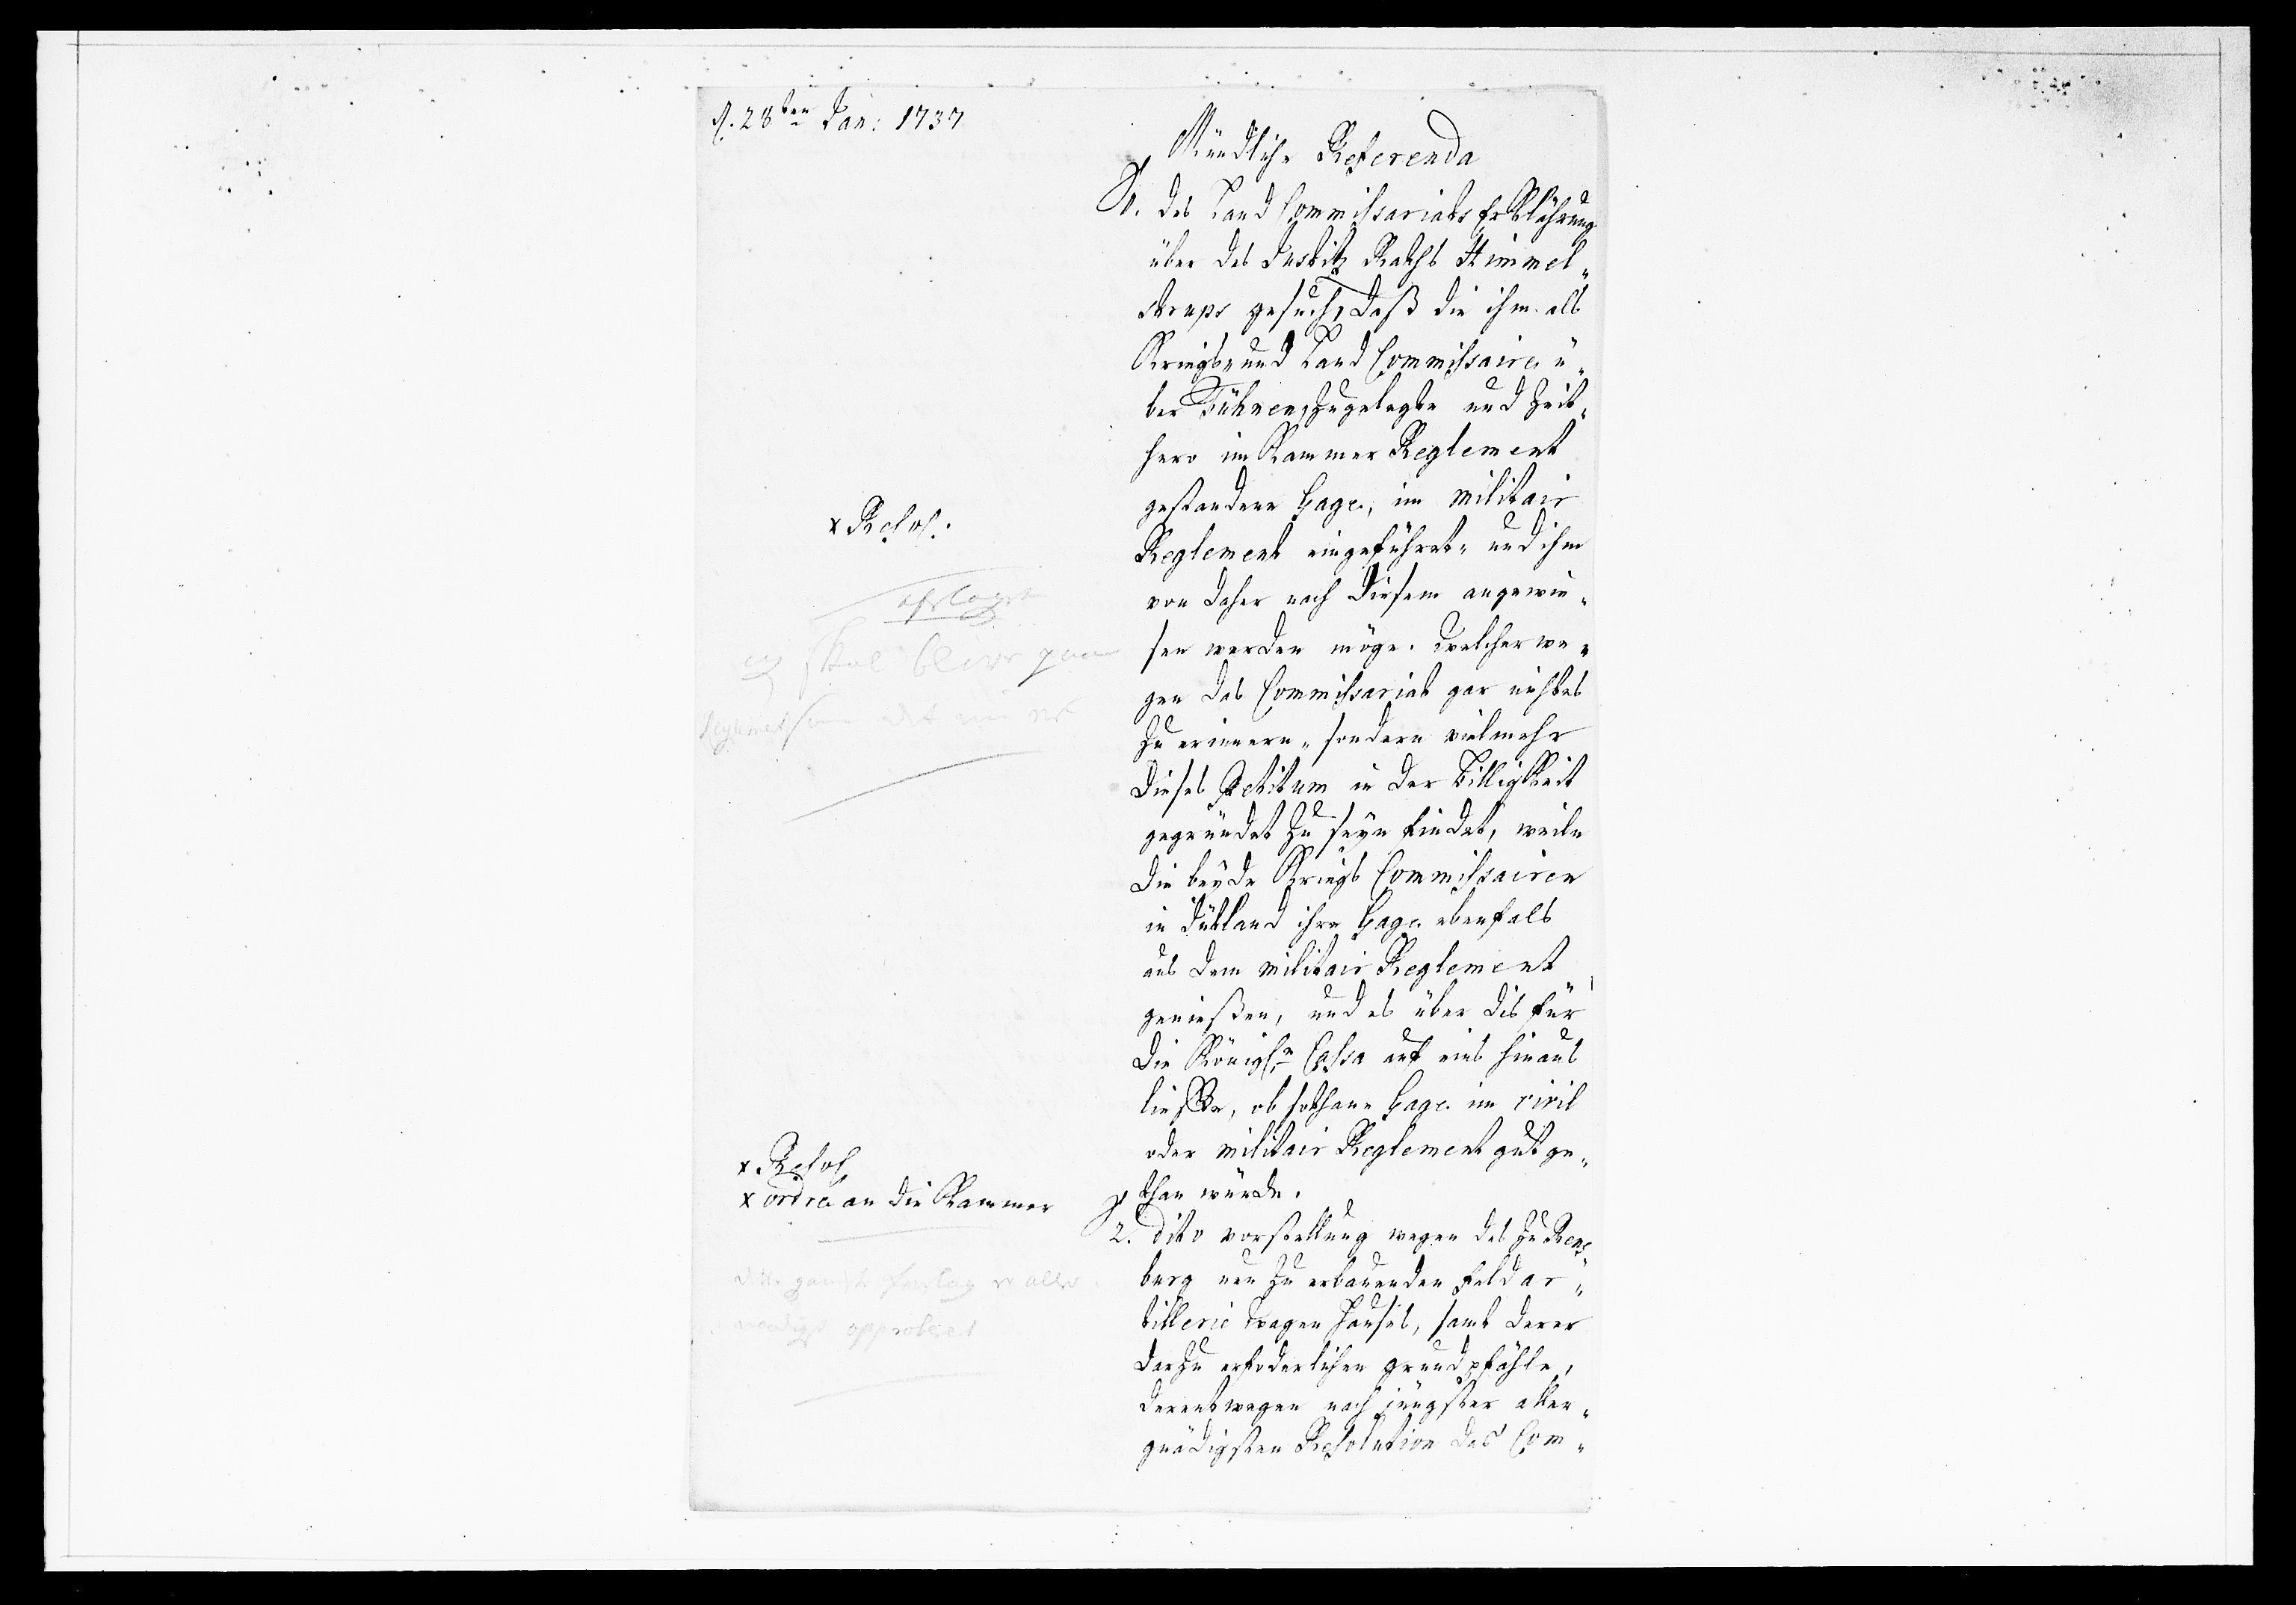 d. 28ten Jan: 1737
Mündliche Referenda
1. des Land Commissariats Erklährung
über des Justitz Raths Himmel„
straps gesuch, daß die ihm als
Kriegs und Land Commissaire ü„
ber Fühnen, zugelegte und zeit„
hero im Kammer Reglement
gestandene Gage, im militair
Reglement eingeführet, und ihm
von daher nach diesem angewie„
sen werden möge. Welcher we„
gen das Commissariat gar nichtes
zu erinnern, sondern vielmehr
dieses Petitum in der billigkeit
gegründet zu seyn findet, weiln
die beyde Kriegs Commissairen
in Jütland ihre Gage ebenfals
aus dem militair Reglement
genießen, und es über dis für
die Königl. Cassa auf eins hinaus
lieffe, ob sothane Gage im civil
oder militair Reglement gut ge„
than würde.
2. dito vorstellung wegen des zu Rens„
burg neu zu erbauenden feld ar„
tillerie wagen hauses, samt derer
darzu erfoderlichen grundpfähle,
derentwegen nach jüngster aller„
gnädigsten Resolution das Com„
x Resol.
afslagen
skal blive paa
Reglement som det nu er
x. Resol.
x ordre an die Kammer
dette gandske forslag er aller
naadigst approberet